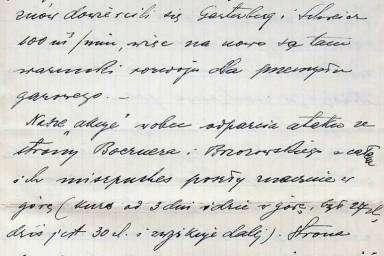 znów dowiercili się Gartenberg i Schreier
100 m³/min, więc na nowo są tam
warunki rozwoju dla przemysłu
gazowego. —
Nasze „akcje" wobec odparcia ataku ze
strony Boernera i Brzozowskiego z całą
ich miszpuches poszły znacznie w
górę (kurs od 3 dni idzie w górę, był 27 d,
dziś jest 30 d. i zwyżkuje dalej). Strona